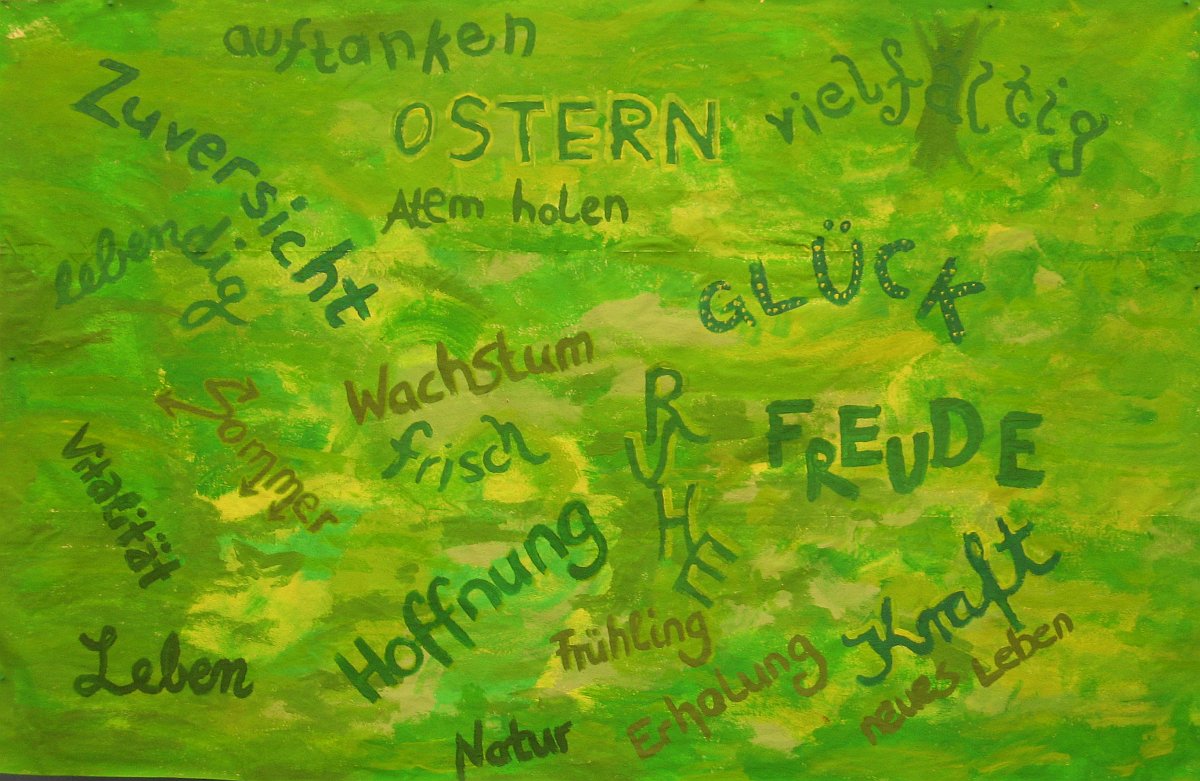 auftanken
Zuversicht
OSTERN
vielfältig
Atem holen
lebendig
GLÜCK
Wachstum
frisch
Sommer
RUHE
FREUDE
Vitalität
Hoffnung
Kraft
Frühling
Leben
Erholung
neues Leben
Natur